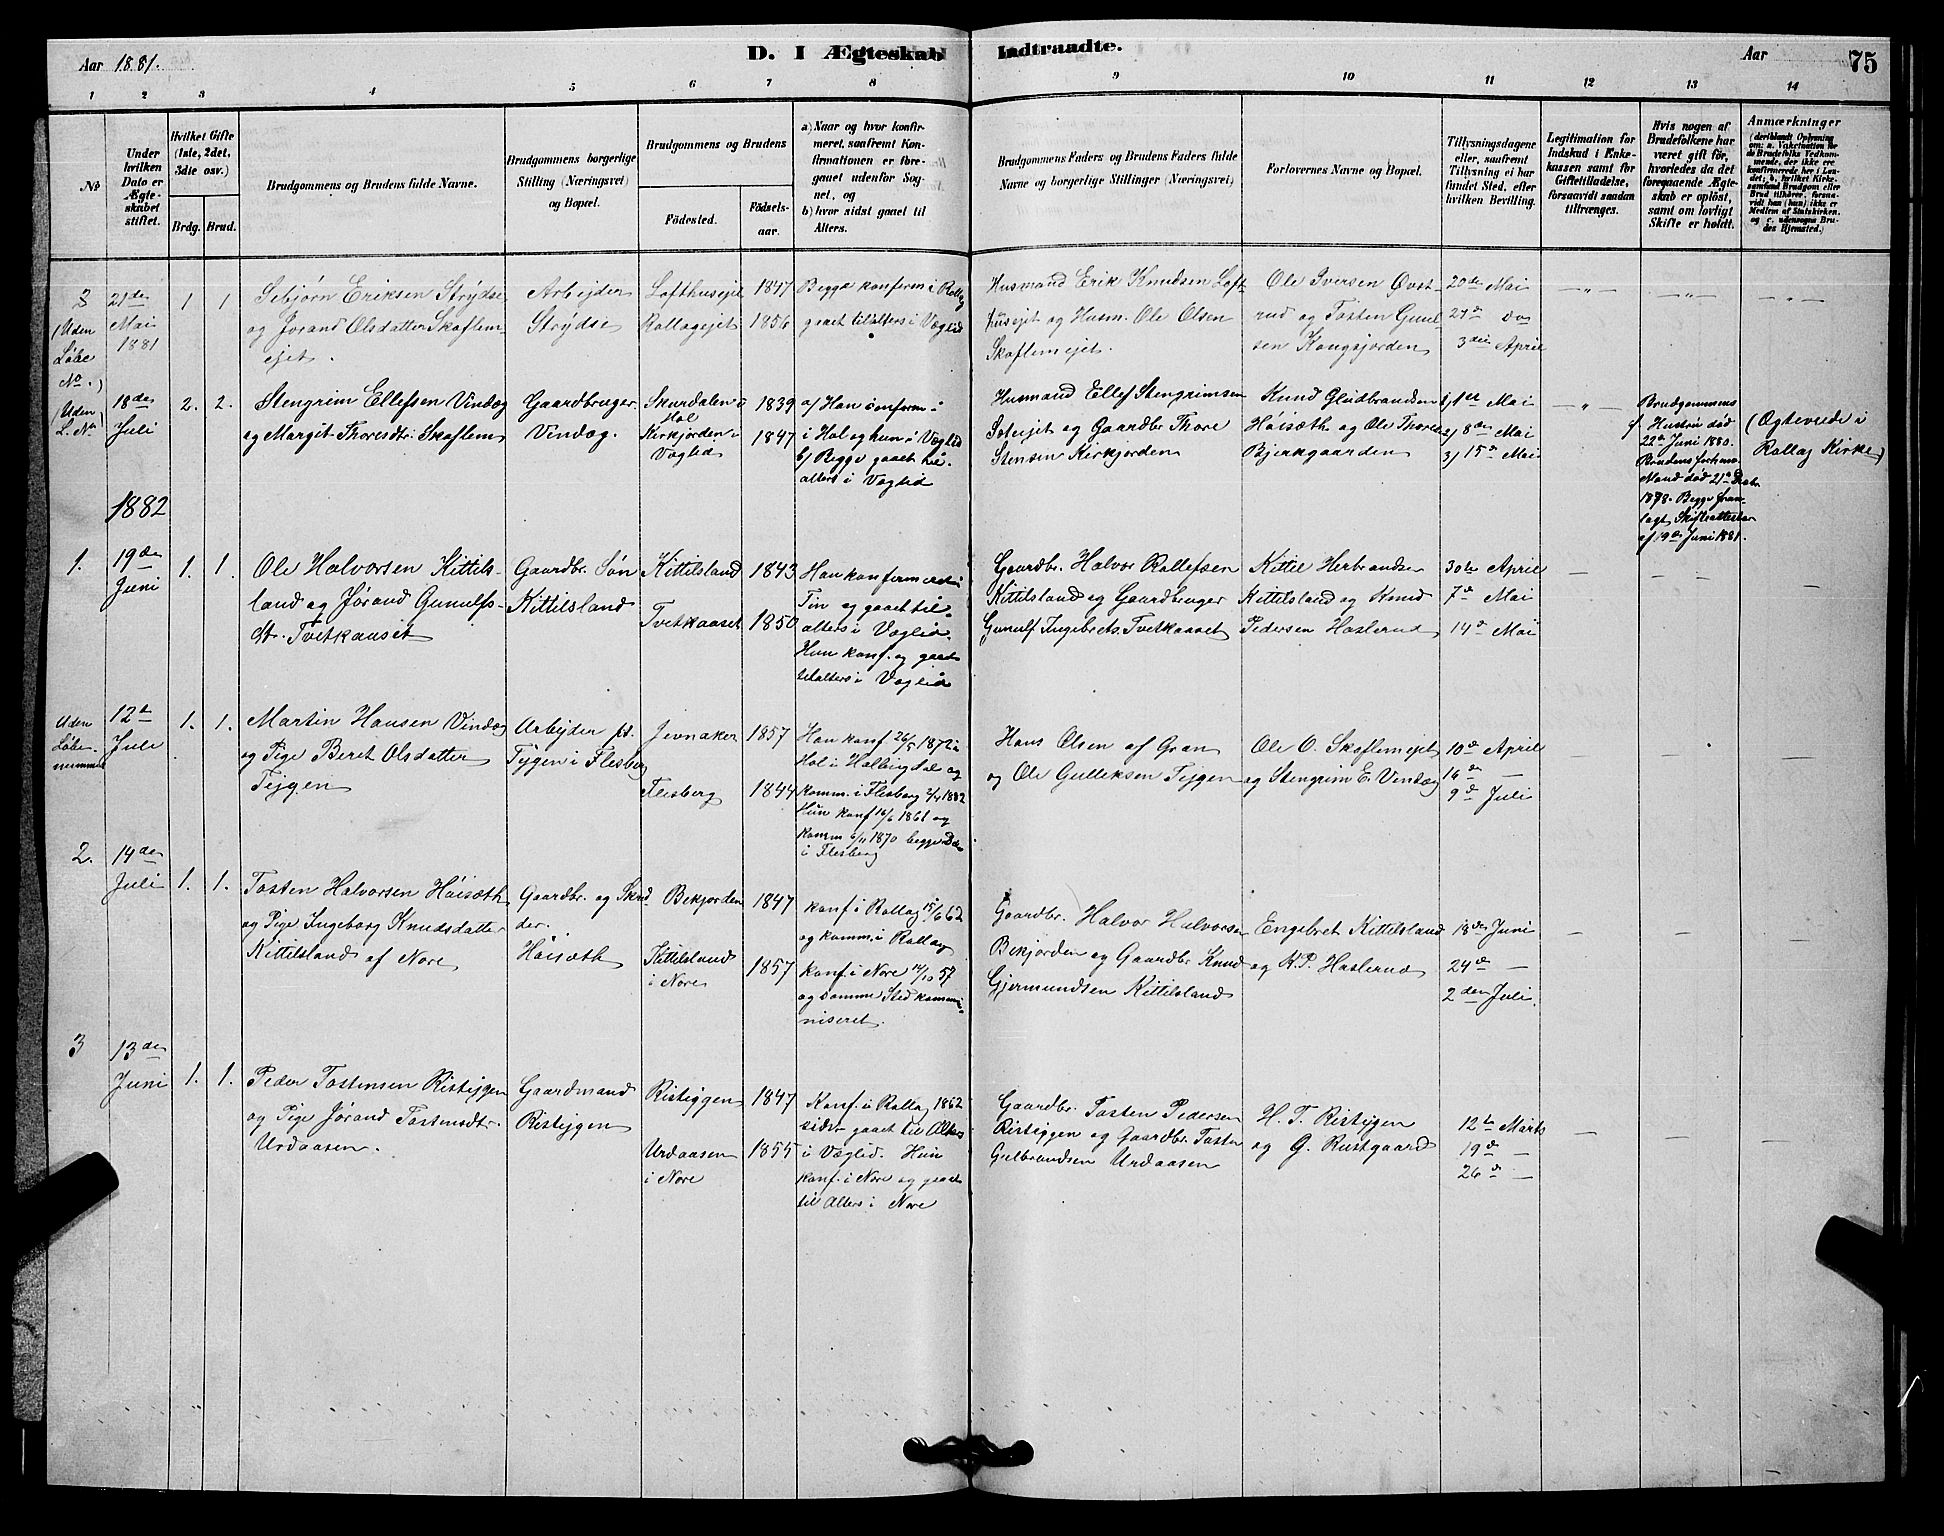 Aar 1881.
D. I Ægteskab Indtraadte.
Aar
75
1 2 3 4 5 6 7 8 9 10 11 12 13 14
No
Under hvilken Dato er Ægteskabet stiftet.
Hvilket Gifte (1ste, 2det, 3die osv.)
Brdg. Brud.
Brudgommens og Brudens fulde Navne.
Brudgommens borgerlige Stilling (Næringsvei) og Bopæl.
Brudgommens og Brudens
Fødested.
Fødselsaar.
a) Naar og hvor konfirmeret, saafremt Konfirmationen er foregaaet udenfor Sognet, og
b) hvor sidst gaaet til Alters.
Brudgommens Faders og Brudens Faders fulde Navne og borgerlige Stillinger (Næringsvei)
Forlovernes Navne og Bopæl.
Tillysningsdagene eller, saafremt Tillysning ei har fundet Sted, efter hvilken Bevilling.
Legitimation for Indskud i Enkekassen samt for Giftetilladelse, forsaavidt saadan tiltrænges.
Hvis nogen af Brudefolkene har været gift før, hvorledes da det foregaaende Ægteskab er opløst, samt om lovligt Skifte er holdt.
Anmærkninger
(deriblandt Oplysning om: a. Vakcination for de Brudefolks Vedkommende, der ikke ere konfirmerede her i Landet; b. hvilket Kirkesamfund Brudgom eller Brud tilhører, forsaavidt han (hun) ikke er Medlem af Statskirken, og c. udensogns Brudes Hjemsted.)
3
(Uden
Løbe
No.)
21de
Mai
1881
1 1
Sebjørn Eriksen Strydse
og Jørand Olsdatter Skoflem
ejet.
Arbejder
Strydse
Lofthusejet
Rollagejet
1847
1856
Begge konferm. i Rollag
gaaet tilalters i Væglid
Husmand Erik Knudsen Loft
husejet og Husm. Ole Olsen
Skoflemejet.
Ole Iversen Øvst
rud og Tosten Gunl
sen Kongsjorden
20de Mai
27de do
3die April
(Uden
L. No
18de
Juli
2. 2.
Stengrim Ellefsen Vindeg
og Margit Thoresdtr. Skoflem
Gaardbruger
Vindeg.
Skurdalen i
Hol
Kirkjorden i
Vægled
1839
1847
a/ Han conferm. i
i Hol og hun i Væglid
b/ Begge gaaet til
alters i Væglid
Husmand Ellef Stengrimsen
og Gaardbr. Thore
Stensen Kirkjorden
Knud Gludbrandsen
Høisæth og Ole Thores
Bjerkgaarden
1/ 1ste Mai
2/ 8de Mai
3/ 15de Mai
Brudgommens
f. Hustru død
22de Juni 1880.
Brudens forhen
Mand død 21de Decbr
1878. Begge frem-
lagt Skifteattester
af 19de Juni 1881.
(Ogteviede i
Rollag Kirke)
1882
1.
19de
Juni
1. 1.
Ole Halvorsen Kittils-
land og Jørand Gunulfs-
dtr. Tvetkaaset
Gaardbr. Søn
Kittilsland
Kittilsland
Tvetkaaset
1843
1850
Han konfermeret i
Tin og gaaet til
alters i Væglid.
Hun konf. og gaaet
tilalters i Væglid
Gaardbr. Halvor Rollefsen
Kittilsland og Gaardbruger
Gunulf Ingebrets. Tvetkaaset
Kittil Herbrandse
Kittilsland og Knud
Pedersen Haslerud
30te April
7de Mai
14de Mai
Uden
Løbe-
nummer
12te
Juli
1. 1.
Martin Hansen Vindeg
og Pige Beret Olsdatter
Tejgen
Arbejder pt.
Tejgen i Flesberg
Jevnaker
Flesberg
1857
1844
Han konf. 26/5 1872 i
Hol i Hallingdal og
komm. i Flesberg 2/4 1882
Hun konf 16/6 1861 og
komm 6/11 1870 begge Dele
i Flesberg
Hans Olsen af Gran
og Ole Gulleksen Tejgen
Ole O. Skoflemejet
og Stengrim E. Vindeg
10de April
16de —
9de Juli
2.
14de
Juli
1. 1.
Tosten Halvorsen Høisæth
og Pige Ingeborg Knudsdatter
Kittilsland af Nore
Gaardbr. og Skræd
der.
Høisæth
Bekjorden
Kittilsland
i Nore
1847
1857
konf. i Rollag 15/6 62
og komm. i Rollag
konf. i Nore 14/10 57
og samme Sted kommu-
niseret.
Gaardbr. Halvor Halvorsen
Bekjorden og Gaardbr. Knud
Gjermundsen Kittilsland
Engebret Kittilsland
og K.P. Haslerud
18de Juni
24de —
2den Juli
3
13de
Juni
1. 1.
Peder Tostensen Risteigen
og Pige Jørand Tostensdtr.
Urdaasen.
Gaardmand
Risteigen
Risteigen
Urdaasen
i Nore
1847
1855
Konf. i Rollag 1862
sidst gaaet til Alters
i Væglid. Hun
konf. i Nore og gaaet
til Alters i Nore
Gaardbr. Tosten Pedersen
Risteigen og Gaardbr. Tosten
Gulbrandsen Urdaasen
H. T. Risteigen
og G. Rustgaard
12te Marts
19de —
26de —